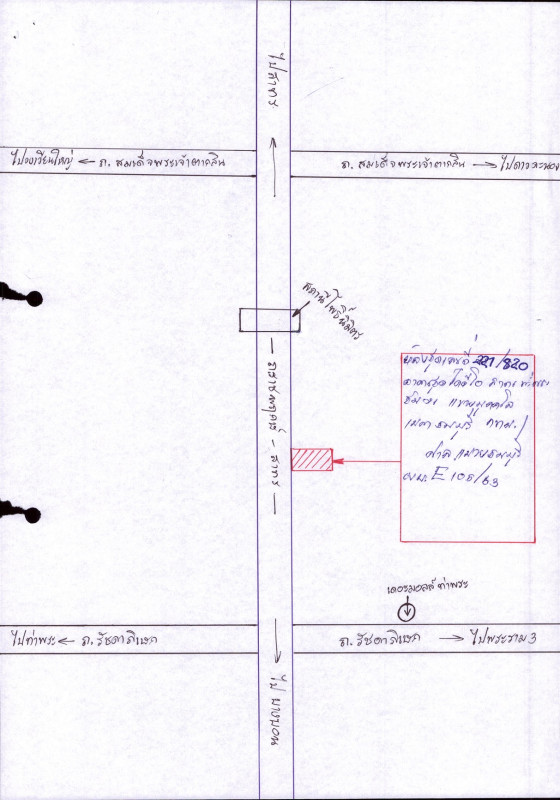 ไปสาทร
ไปวงเวียนใหญ่ ← ถ. สมเด็จพระเจ้าตากสิน
ถ. สมเด็จพระเจ้าตากสิน → ไปดาวคะนอง
สถานีโพธิ์นิมิตร
ถ.ราชพฤกษ์ - สาทร
ห้องชุดเลขที่ 221/820
อาคารชุด
แขวงบุคคโล
เขตธนบุรี กทม.
ศาลแพ่งธนบุรี
ผบ. E 105/63
เดอะมอลล์ ท่าพระ
ไปท่าพระ ← ถ. รัชดาภิเษก
ถ. รัชดาภิเษก → ไปพระราม 3
ไป บางบอน